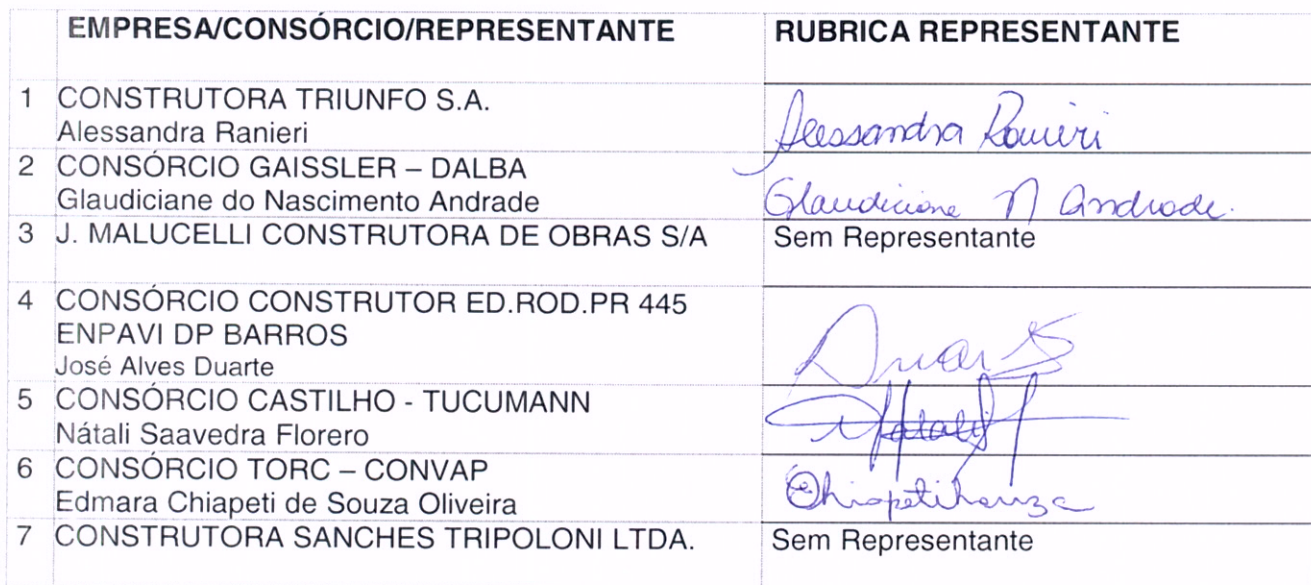 EMPRESA/CONSÓRCIO/REPRESENTANTE RUBRICA REPRESENTANTE
1 CONSTRUTORA TRIUNFO S.A.
Alessandra Ranieri Alessandra Ranieri
2 CONSÓRCIO GAISSLER – DALBA
Glaudiciane do Nascimento Andrade Glaudiciane N Andrade.
3 J. MALUCELLI CONSTRUTORA DE OBRAS S/A Sem Representante
4 CONSÓRCIO CONSTRUTOR ED.ROD.PR 445
ENPAVI DP BARROS
José Alves Duarte
5 CONSÓRCIO CASTILHO - TUCUMANN
Nátali Saavedra Florero
6 CONSÓRCIO TORC – CONVAP
Edmara Chiapeti de Souza Oliveira
7 CONSTRUTORA SANCHES TRIPOLONI LTDA. Sem Representante